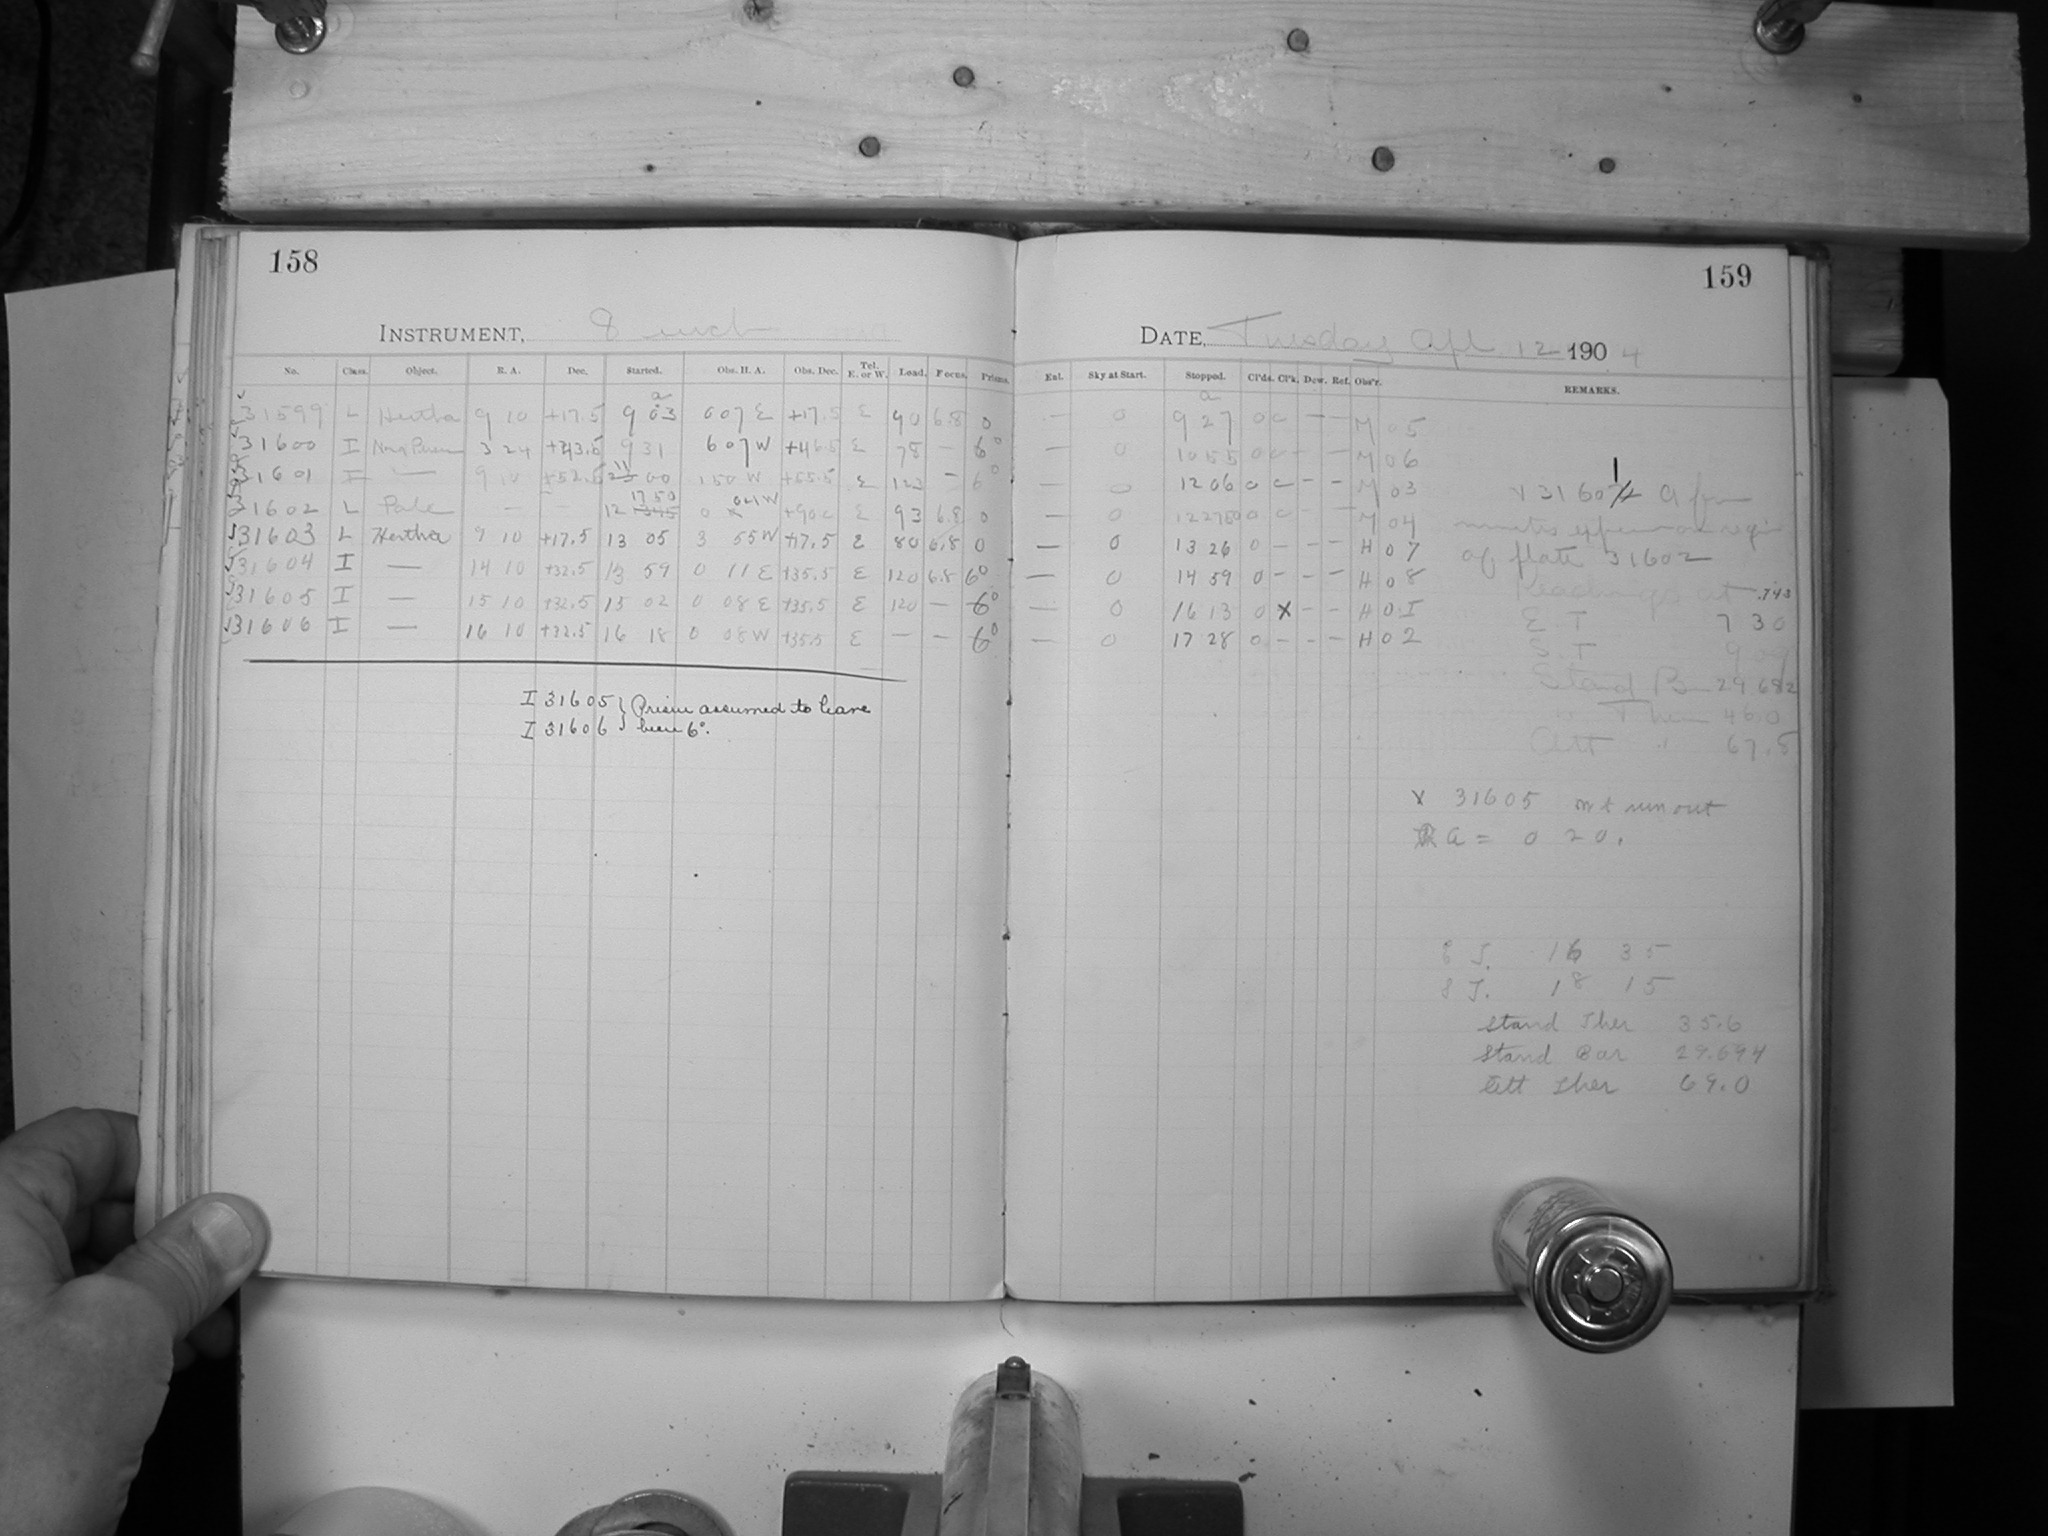 158
INSTRUMENT, 8 inch
No. Class. Object. R. A. Dec. Started. Obs. H. A. Obs. Dec. Tel. E. or W. Load. Focus. Prisms.
31599 L Hertha 9 10 +17.5 9 03 0 07 E +17.5 E 90 6.8 0
31600 I 3 24 +43.5 9 31 6 07 W +46.5 E 78 — 6°
31601 I — 9 10 +52.5 00 1 50 W +55.5 E 123 — 6°
31602 L Pole — — 12 17 50 0 +90 E 93 6.8 0
31603 L Hertha 9 10 +17.5 13 05 3 55 W +17.5 E 80 6.8 0
31604 I — 14 10 +32.5 13 59 0 11 E +35.5 E 120 6.8 6°
31605 I — 15 10 +32.5 15 02 0 08 E +35.5 E 120 — 6°
31606 I — 16 10 +32.5 16 18 0 08 W +35.5 E — — 6°
I 31605 } Prism assumed to have
I 31606 } been 6°.
159
DATE, Tuesday Apl. 12 1904
Ent. Sky at Start. Stopped. Cl'ds. Cl'k. Dew. Ref. Obs'r. REMARKS.
— 0 9 27 0 c — — M 05
— 0 10 55 0 c — — M 06
— 0 12 06 0 c — — M 03
— 0 12 27 50 0 c — — M 04
— 0 13 26 0 — — — H 07
— 0 14 59 0 — — — H 08
— 0 16 13 0 X — — H 01
— 0 17 28 0 — — — H 02
A few
minutes
of plate 31602
Readings at .743
E. T 7 30
S. T 9 09
Stand B 29.682
Ther 46.0
Att " 67.5
x 31605 not run out
R A = 0 20.
E T. 16 35
S T. 18 15
Stand Ther 35.6
Stand Bar 29.694
Att Ther 69.0